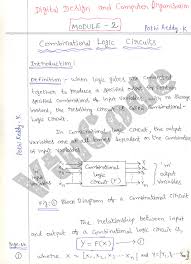 Digital Design and Computer Organisation
MODULE - 2
Pothi Reddy.K
Combinational Logic Circuits
Introduction:
Definition: when logic gates are connected
together to produce a specified output for certain
specified combinations of input variables, with no storage
involved, the resulting circuit is called Combinational
logic circuit.
In Combinational circuit, the output
variables are at all times dependent on the combination
of inputs.
Combinational
logic
circuit (F)
'm'
output
variables
Fig: Block Diagram of a Combinational circuit
The relationship between input
and output of a Combinational logic circuit is,
Y = F(X)
where X = {x₁, x₂, x₃ ...} and Y = {
VTUCode